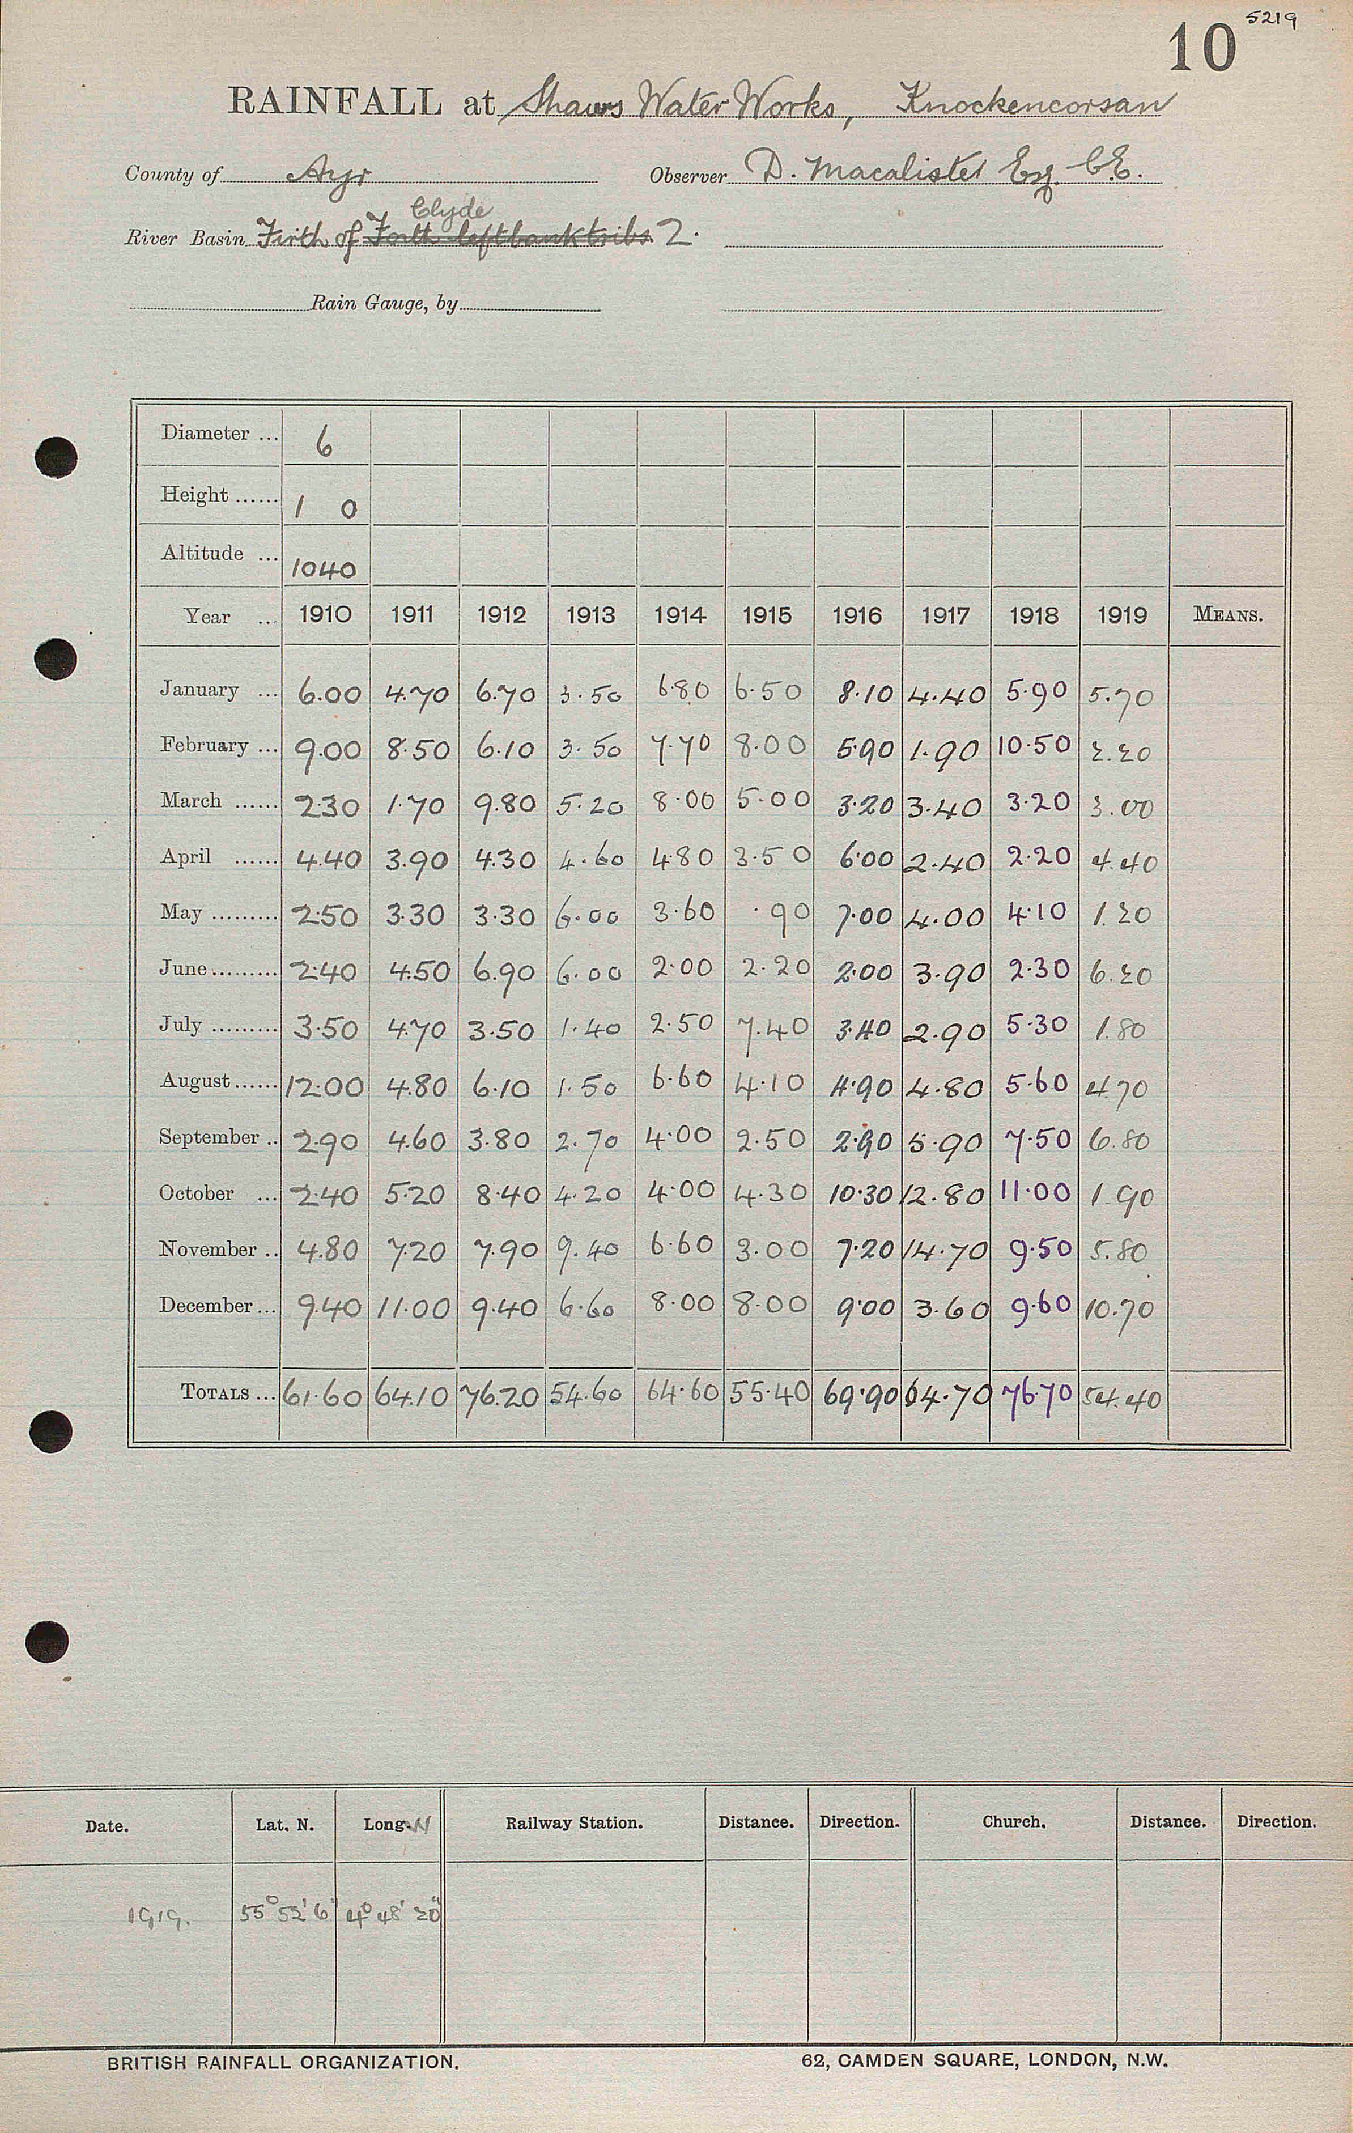 5219
10
RAINFALL at Shaws Water Works, Knockencorsan
County of Ayr Observer D. Macalister Esq. C.E.
Clyde
River Basin Firth of Forth left bank tribs 2.
Rain Gauge, by
Diameter ... 6
Height ...... 1 0
Altitude ... 1040
Year ... 1910 1911 1912 1913 1914 1915 1916 1917 1918 1919 MEANS.
January ... 6.00 4.70 6.70 3.50 6.80 6.50 8.10 4.40 5.90 5.70
February ... 9.00 8.50 6.10 3.50 7.70 8.00 5.90 1.90 10.50 2.20
March ...... 2.30 1.70 9.80 5.20 8.00 5.00 3.20 3.40 3.20 3.00
April ...... 4.40 3.90 4.30 4.60 4.80 3.50 6.00 2.40 2.20 4.40
May ......... 2.50 3.30 3.30 6.00 3.60 .90 7.00 4.00 4.10 1.20
June ......... 2.40 4.50 6.90 6.00 2.00 2.20 2.00 3.90 2.30 6.20
July ......... 3.50 4.70 3.50 1.40 2.50 7.40 3.40 2.90 5.30 1.80
August ...... 12.00 4.80 6.10 1.50 6.60 4.10 4.90 4.80 5.60 4.70
September .. 2.90 4.60 3.80 2.70 4.00 2.50 2.90 5.90 7.50 6.80
October ... 2.40 5.20 8.40 4.20 4.00 4.30 10.30 12.80 11.00 1.90
November .. 4.80 7.20 7.90 9.40 6.60 3.00 7.20 14.70 9.50 5.80
December ... 9.40 11.00 9.40 6.60 8.00 8.00 9.00 3.60 9.60 10.70
TOTALS ... 61.60 64.10 76.20 54.60 64.60 55.40 69.90 64.70 76.70 54.40
Date. Lat. N. Long. W Railway Station. Distance. Direction. Church. Distance. Direction.
1919. 55° 52' 6" 4° 48' 20"
BRITISH RAINFALL ORGANIZATION. 62, CAMDEN SQUARE, LONDON, N.W.